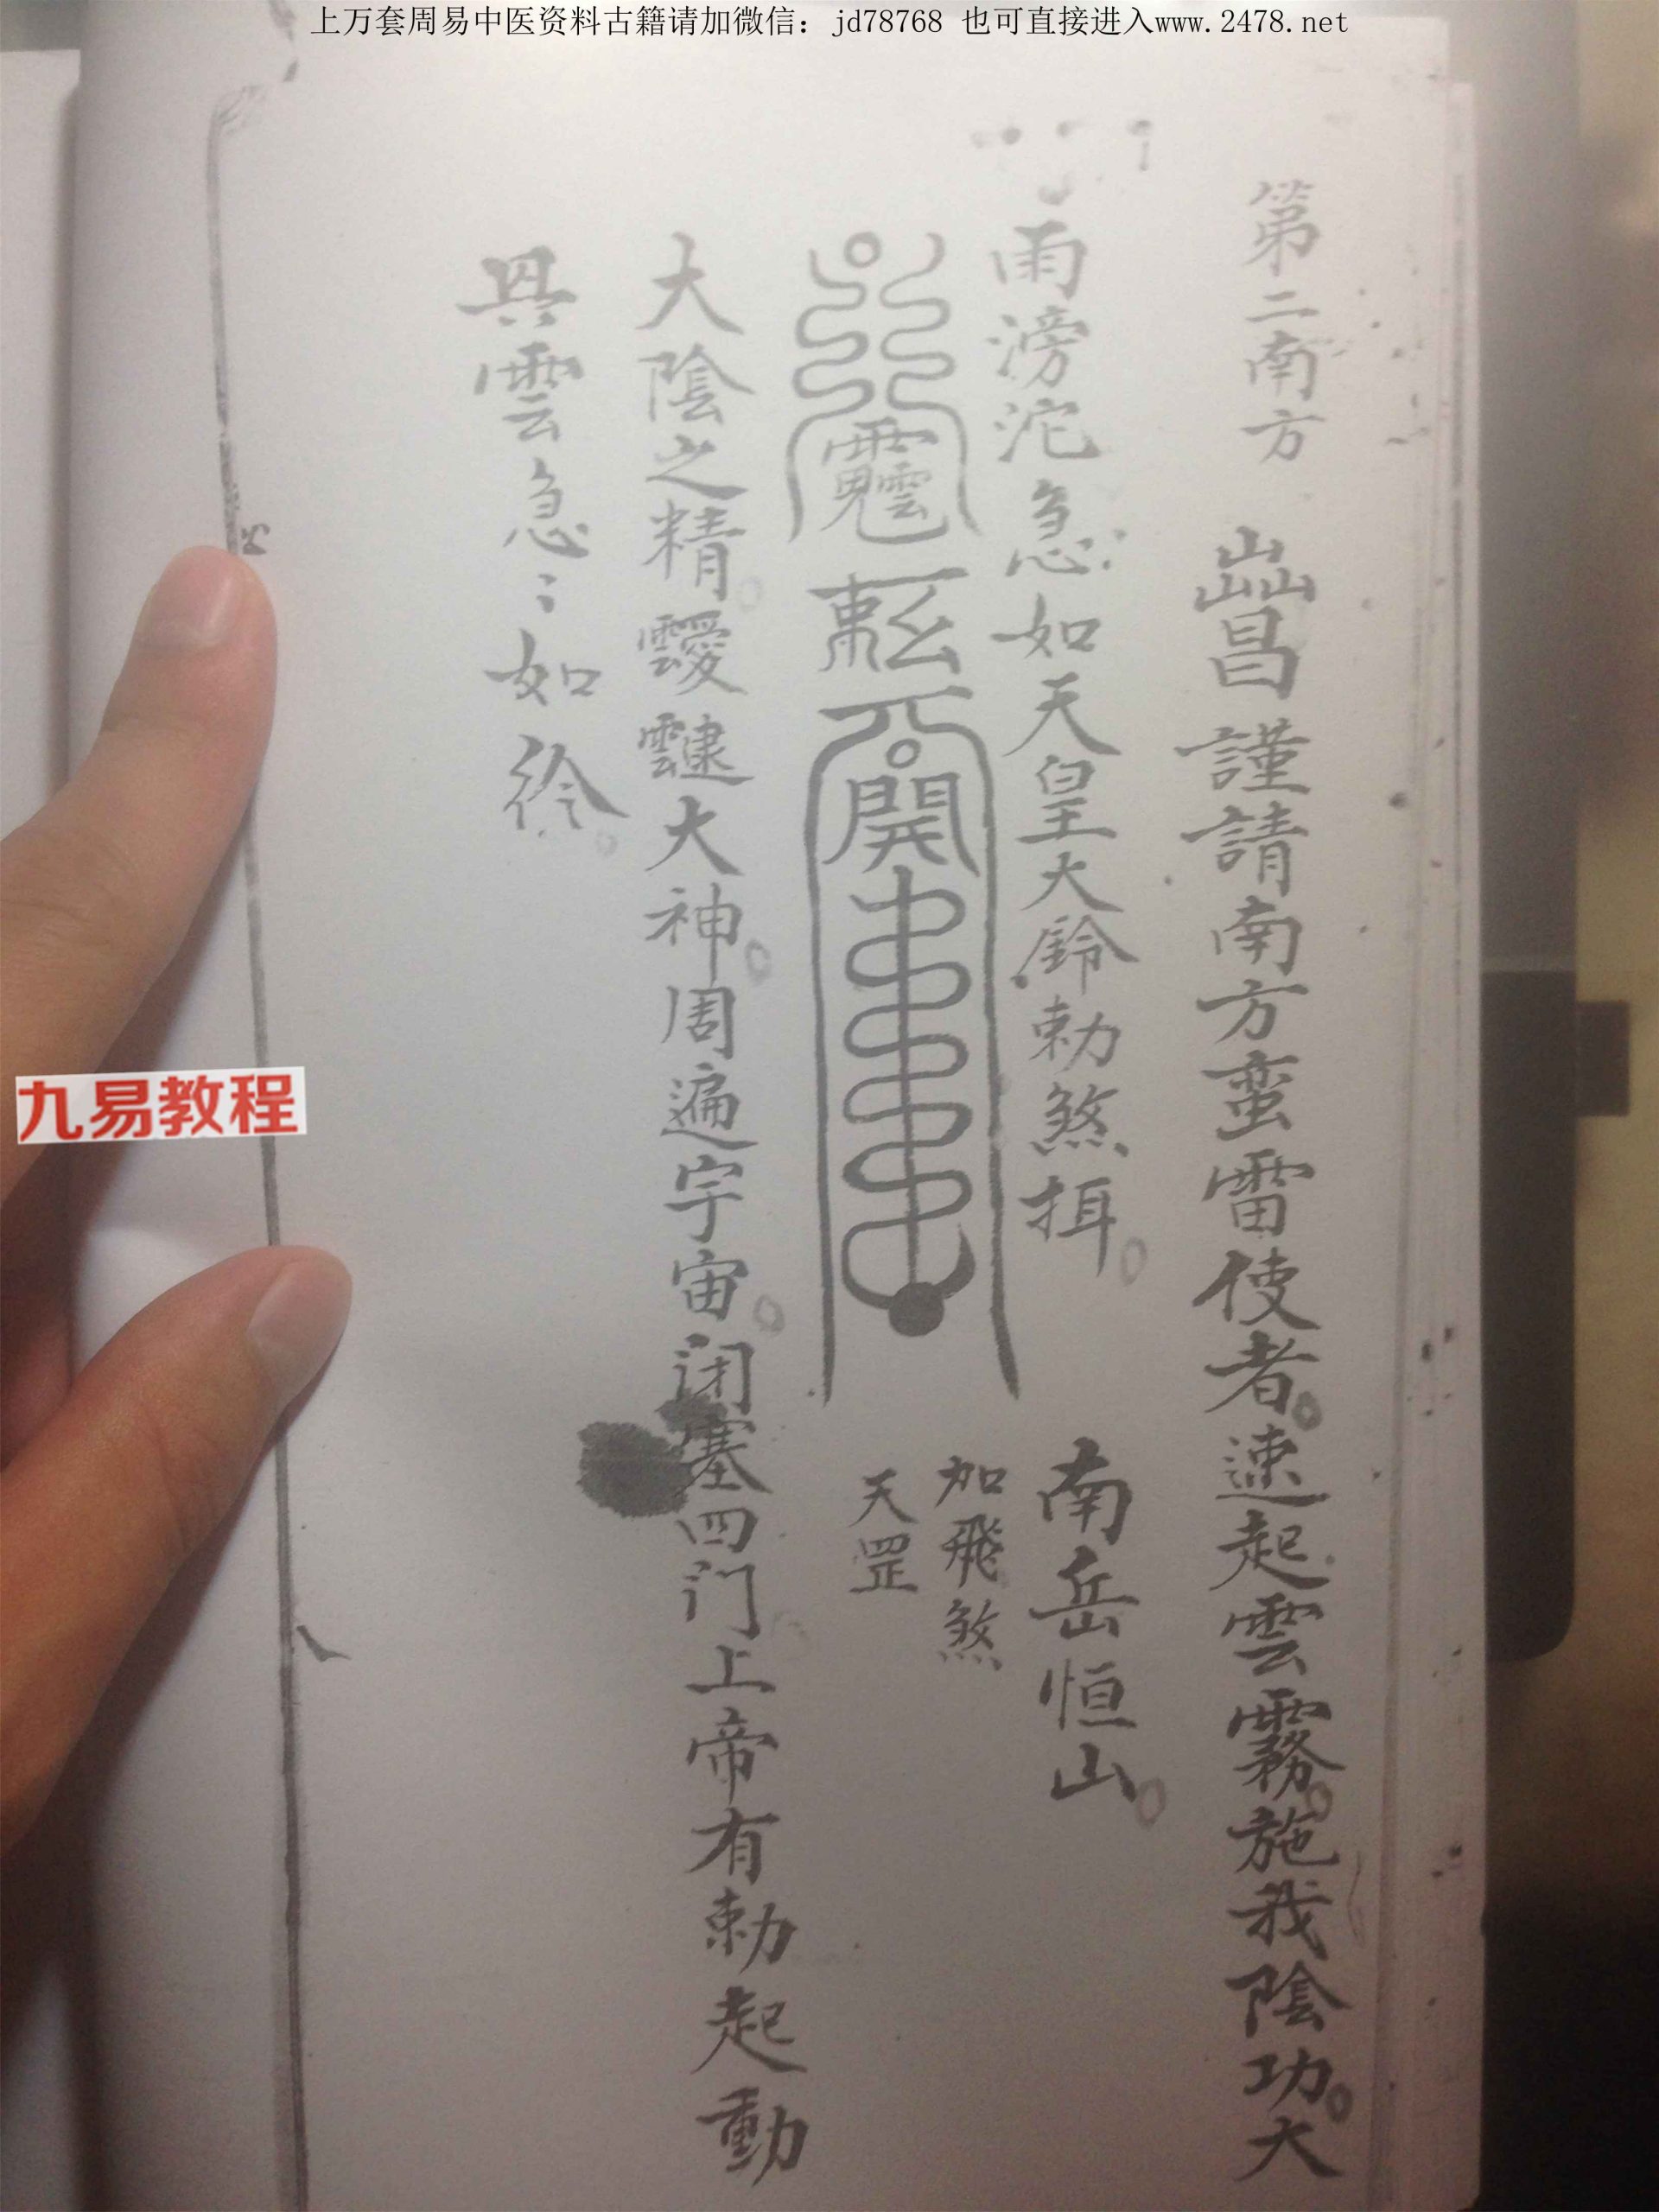 上万套周易中医资料古籍请加微信：jd78768 也可直接进入www.2478.net
第二南方 謹請南方蛮雷使者。速起雲霧。施我陰功。大
雨滂沱急〻如天皇大鈴勅煞揖。南岳恒山。
加飛煞
天罡
開
大陰之精。大神。周遍宇宙。闭塞四门上帝有勅起動
興雲急〻如
九易教程